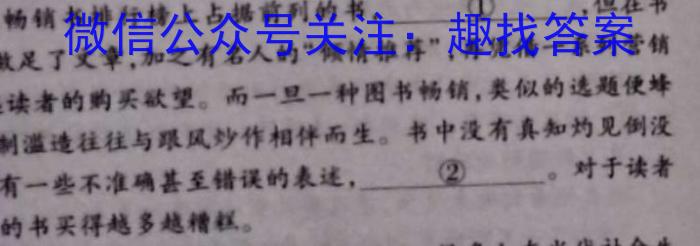 畅销书排行榜上占据前列的书　①　,但在书
微信公众号关注：趣找答案
做足了文章,加之有名人的“倾情推荐”,营销
读者的购买欲望。而一旦一种图书畅销,类似的选题便蜂
制滥造往往与跟风炒作相伴而生。书中没有真知灼见倒没
有一些不准确甚至错误的表述,　②　。对于读者
的书买得越多越糟糕。